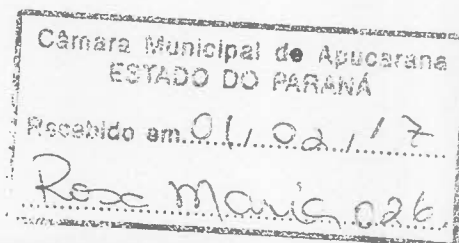 Câmara Municipal de Apucarana
ESTADO DO PARANÁ
Recebido em 01, 02, 17
Rosc Maria 026